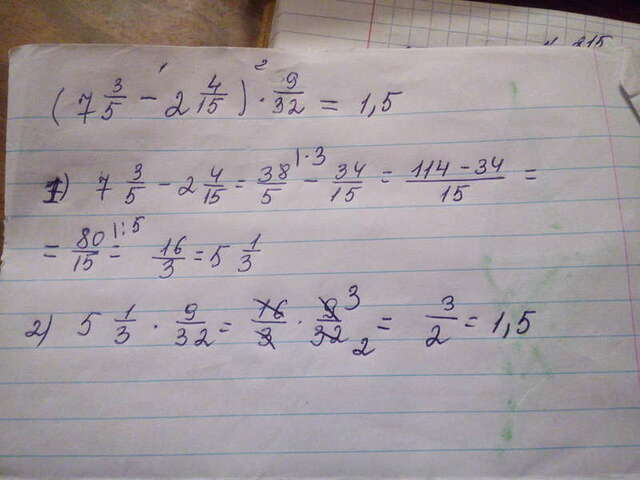 815
(7 3/5 - 2 4/15) · 9/32 = 1,5
1) 7 3/5 - 2 4/15 = 38/5 |·3 - 34/15 = 114-34/15 =
= 80/15 |:5 = 16/3 = 5 1/3
2) 5 1/3 · 9/32 = 16/3 · 9/32 3 2 = 3/2 = 1,5